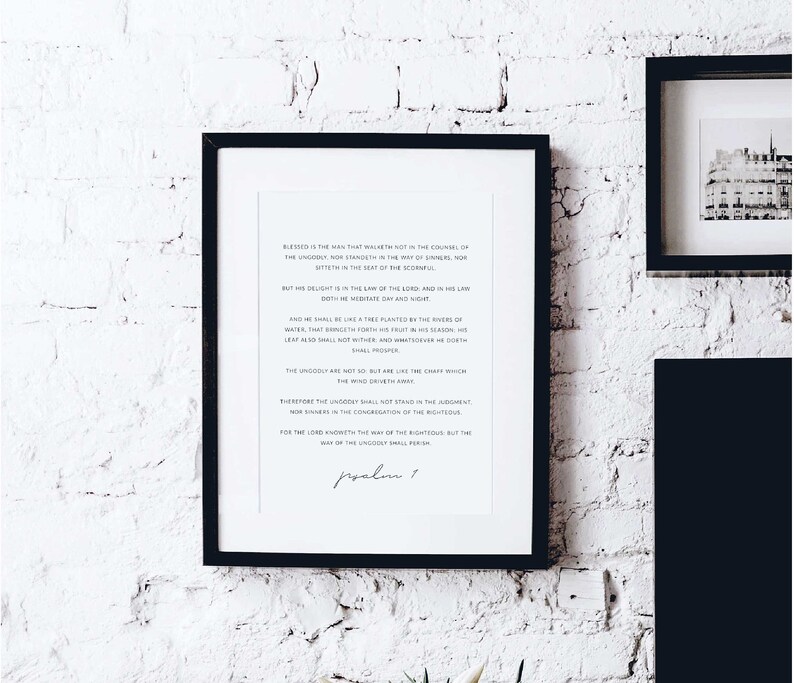 BLESSED IS THE MAN THAT WALKETH NOT IN THE COUNSEL OF
THE UNGODLY, NOR STANDETH IN THE WAY OF SINNERS, NOR
SITTETH IN THE SEAT OF THE SCORNFUL.
BUT HIS DELIGHT IS IN THE LAW OF THE LORD; AND IN HIS LAW
DOTH HE MEDITATE DAY AND NIGHT.
AND HE SHALL BE LIKE A TREE PLANTED BY THE RIVERS OF
WATER, THAT BRINGETH FORTH HIS FRUIT IN HIS SEASON; HIS
LEAF ALSO SHALL NOT WITHER; AND WHATSOEVER HE DOETH
SHALL PROSPER.
THE UNGODLY ARE NOT SO: BUT ARE LIKE THE CHAFF WHICH
THE WIND DRIVETH AWAY.
THEREFORE THE UNGODLY SHALL NOT STAND IN THE JUDGMENT,
NOR SINNERS IN THE CONGREGATION OF THE RIGHTEOUS.
FOR THE LORD KNOWETH THE WAY OF THE RIGHTEOUS: BUT THE
WAY OF THE UNGODLY SHALL PERISH.
psalm 1